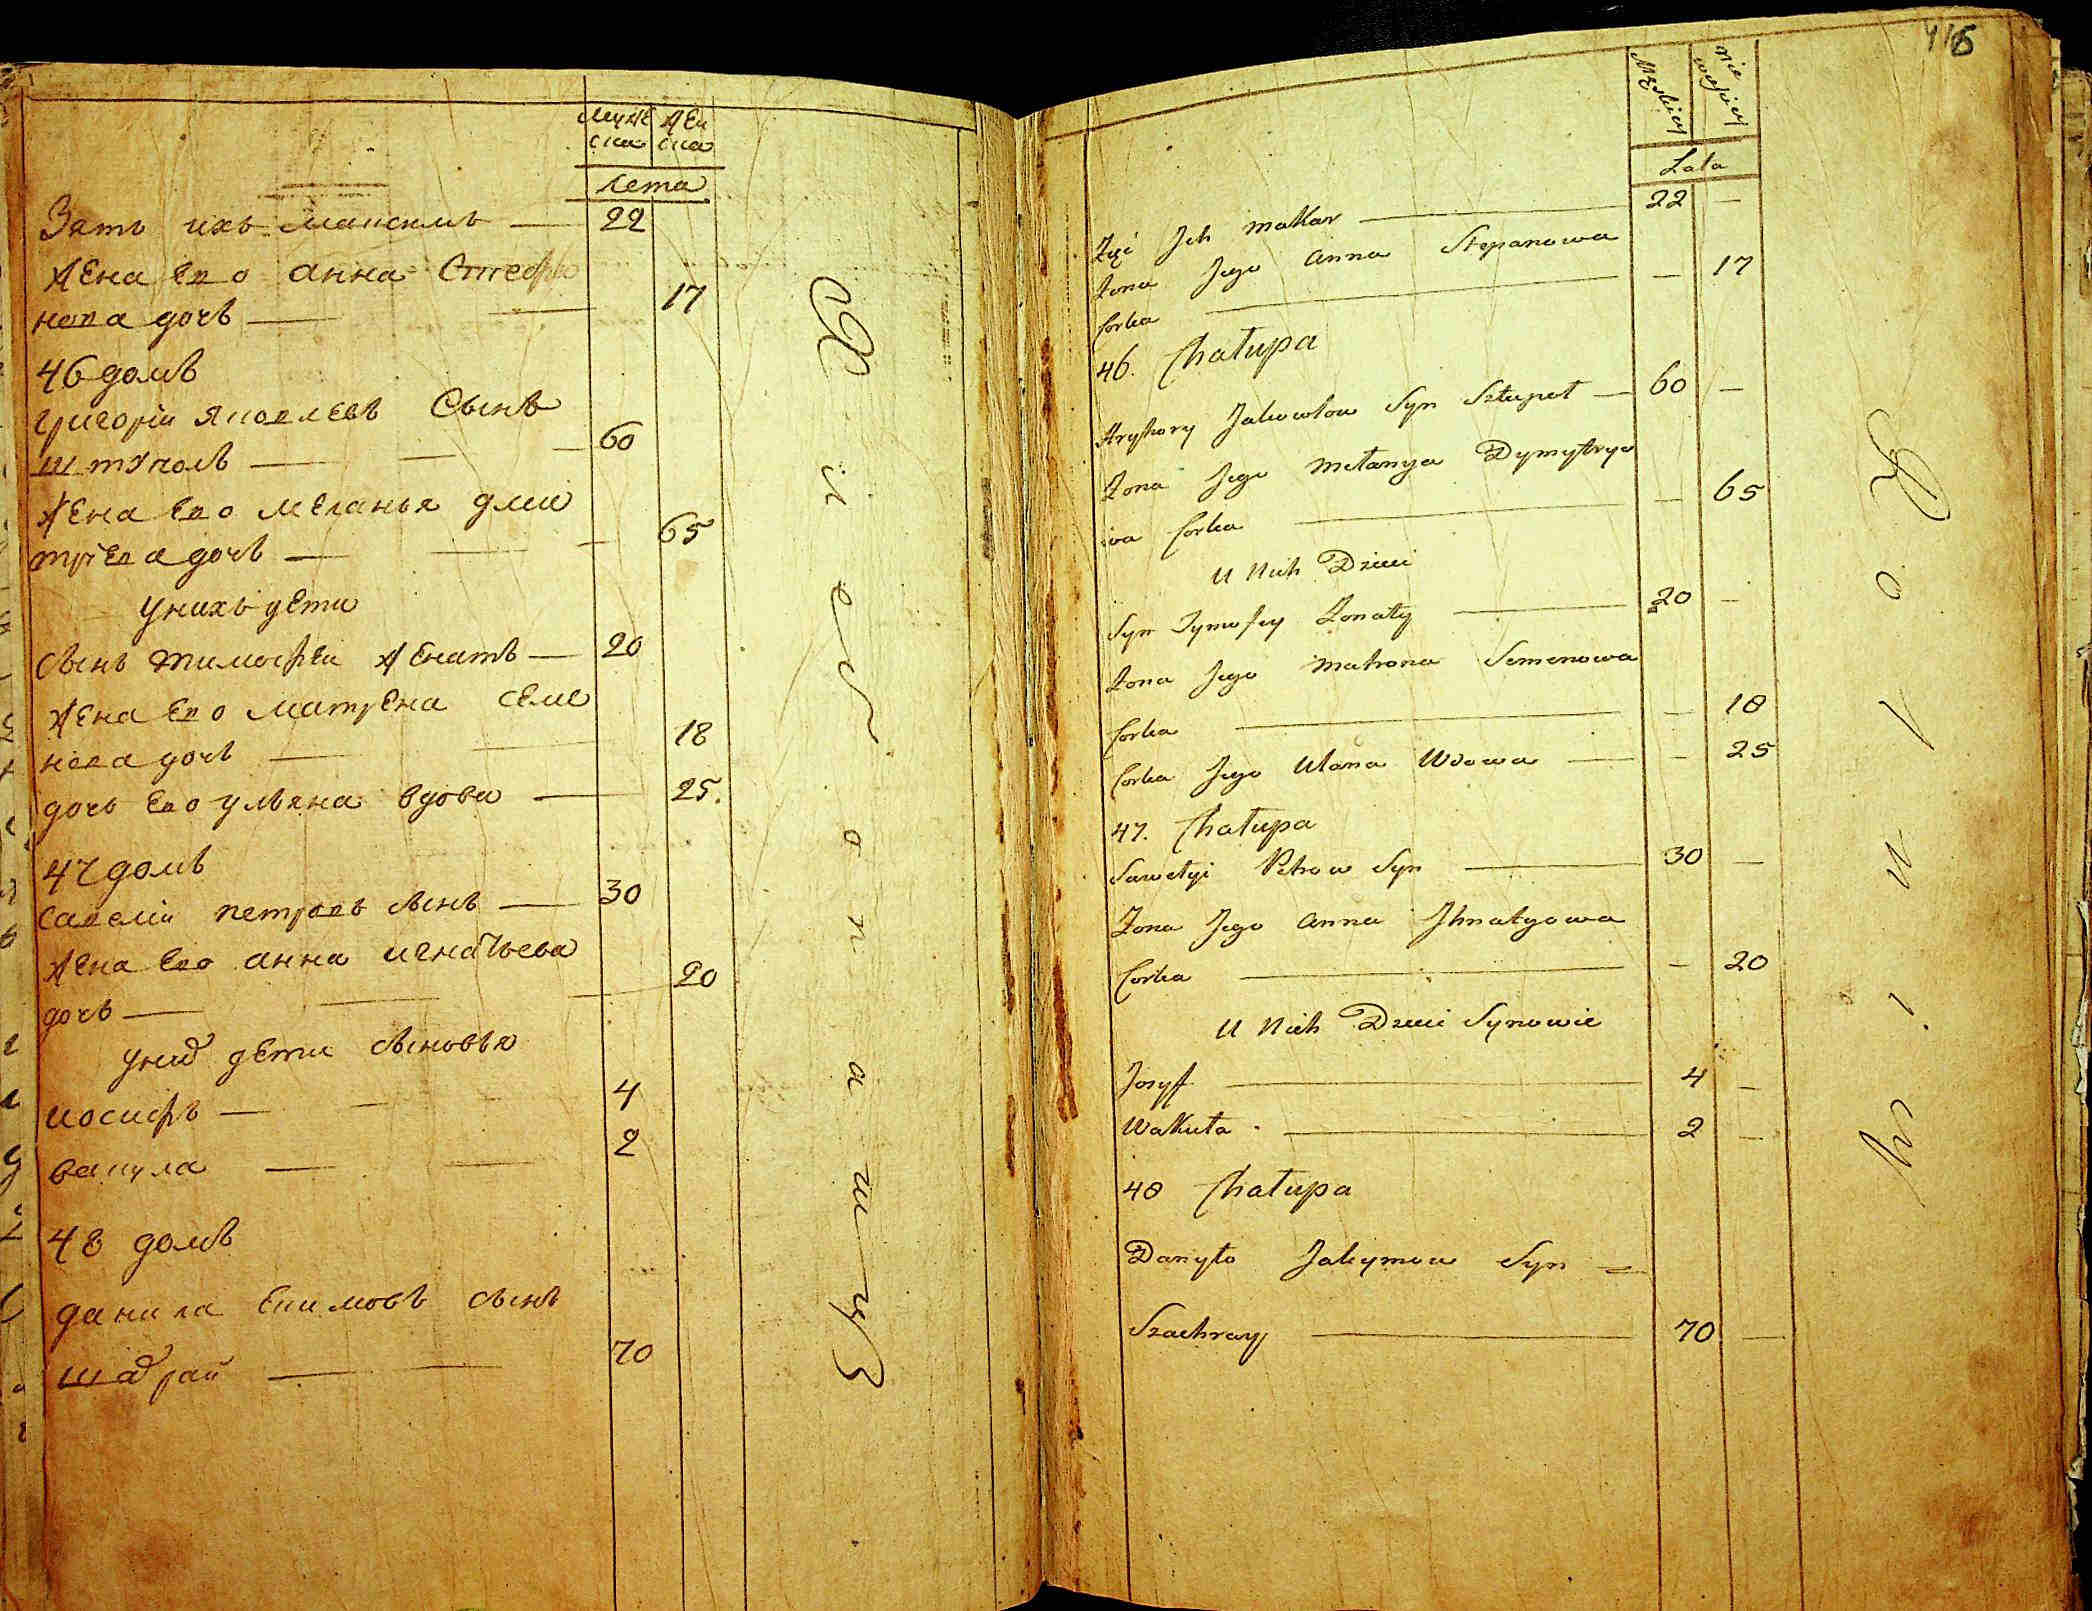 мужеска женска
лета
Зять ихъ максимъ — 22
жена его анна Стефа
нова дочь — 17
46 домъ
григорiи яковлевъ Сынъ
штуполъ — 60
жена его меланья дми
трiева дочь — 65
унихъ дети
сынъ тимофеи женатъ — 20
жена его матрена семе
нова дочь — 18
дочь его ульяна вдова — 25.
47 домъ
савелiи петровъ сынъ — 30
жена его анна игнатьева
дочь — 20
унихъ дети сыновья
иосифъ — 4
вакула — 2
48 домъ
данила екимовъ сынъ
шахрай — 70
416
Męskiey Niewieściey
Lata
Zięć Jch makar — 22 —
Żona Jego anna Stepanowa
Corka — — 17
46. Chałupa
Hryhory Jakowlow Syn Sztupoł — 60 —
Żona Jego Mełanya Dymytryo
wa Corka — — 65
U Nich Dzieci
Syn Tymofey Żonaty — 20 —
Żona Jego Matrona Semenowa
Corka — — 18
Corka Jego Ulana Wdowa — — 25
47. Chałupa
Sawełyi Petrow Syn — 30 —
Żona Jego anna Jhnatyowa
Corka — — 20
U Nich Dzieci Synowie
Josyff — 4 —
Wakuła — 2 —
48 Chałupa
Danyło Jakymow Syn —
Szachray — 70 —